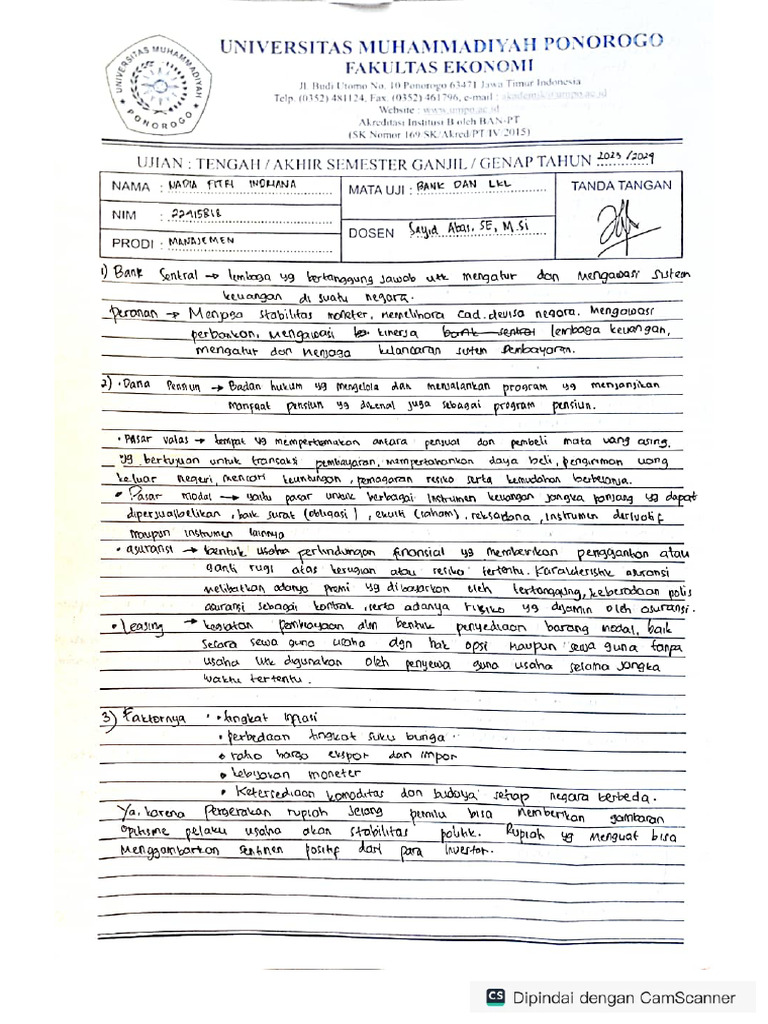 UNIVERSITAS MUHAMMADIYAH PONOROGO
FAKULTAS EKONOMI
Jl. Budi Utomo No. 10 Ponorogo 63471 Jawa Timur Indonesia
Telp. (0352) 481124, Fax. (0352) 461796, e-mail : akademik@umpo.ac.id
Website : www.umpo.ac.id
Akreditasi Institusi B oleh BAN-PT
(SK Nomor 169/SK/Akred/PT/IV/2015)
UNIVERSITAS MUHAMMADIYAH PONOROGO
UJIAN : TENGAH / AKHIR SEMESTER GANJIL / GENAP TAHUN 2023 / 2024
NAMA : NADIA FITRI INDRIANA
MATA UJI : BANK DAN LKL
TANDA TANGAN
NIM : 22415818
DOSEN Sayid Abas, SE, M.Si
PRODI : MANAJEMEN
1) Bank Sentral → lembaga yg bertanggung jawab utk mengatur dan mengawasi sistem
keuangan di suatu negara.
Peranan → Menjaga stabilitas moneter, memelihara cad. devisa negara. Mengawasi
perbankan, Mengawasi kinerja bank sentral lembaga keuangan,
mengatur dan menjaga kelancaran sistem pembayaran.
2) • Dana Pensiun → Badan hukum yg mengelola dan menjalankan program yg menjanjikan
manfaat pensiun yg dikenal juga sebagai program pensiun.
• Pasar valas → tempat yg mempertemukan antara penjual dan pembeli mata uang asing,
yg bertujuan untuk transaksi pembayaran, mempertahankan daya beli, pengiriman uang
keluar negeri, mencari keuntungan, pemagaran resiko serta kemudahan berbelanja.
• Pasar modal → yaitu pasar untuk berbagai instrumen keuangan jangka panjang yg dapat
diperjualbelikan, baik surat (obligasi), ekuiti (saham), reksadana, instrumen derivatif
maupun instrumen lainnya
• asuransi → bentuk usaha perlindungan finansial yg memberikan penggantian atau
ganti rugi atas kerugian atau resiko tertentu. Karakteristik asuransi
melibatkan adanya premi yg dibayarkan oleh tertanggung, keberadaan polis
asuransi sebagai kontrak, serta adanya risiko yg dijamin oleh asuransi.
• Leasing → kegiatan pembiayaan dlm bentuk penyediaan barang modal, baik
secara sewa guna usaha dgn hak opsi maupun sewa guna tanpa
usaha utk digunakan oleh penyewa guna usaha selama jangka
waktu tertentu.
3) Faktornya • tingkat inflasi
• perbedaan tingkat suku bunga
• ratio harga ekspor dan impor
• kebijakan moneter
• Ketersediaan komoditas dan budaya setiap negara berbeda.
Ya, karena Pergerakan rupiah jelang pemilu bisa memberikan gambaran
optisme pelaku usaha akan stabilitas politik. Rupiah yg menguat bisa
menggambarkan sentimen positif dari para Investor.
CS Dipindai dengan CamScanner